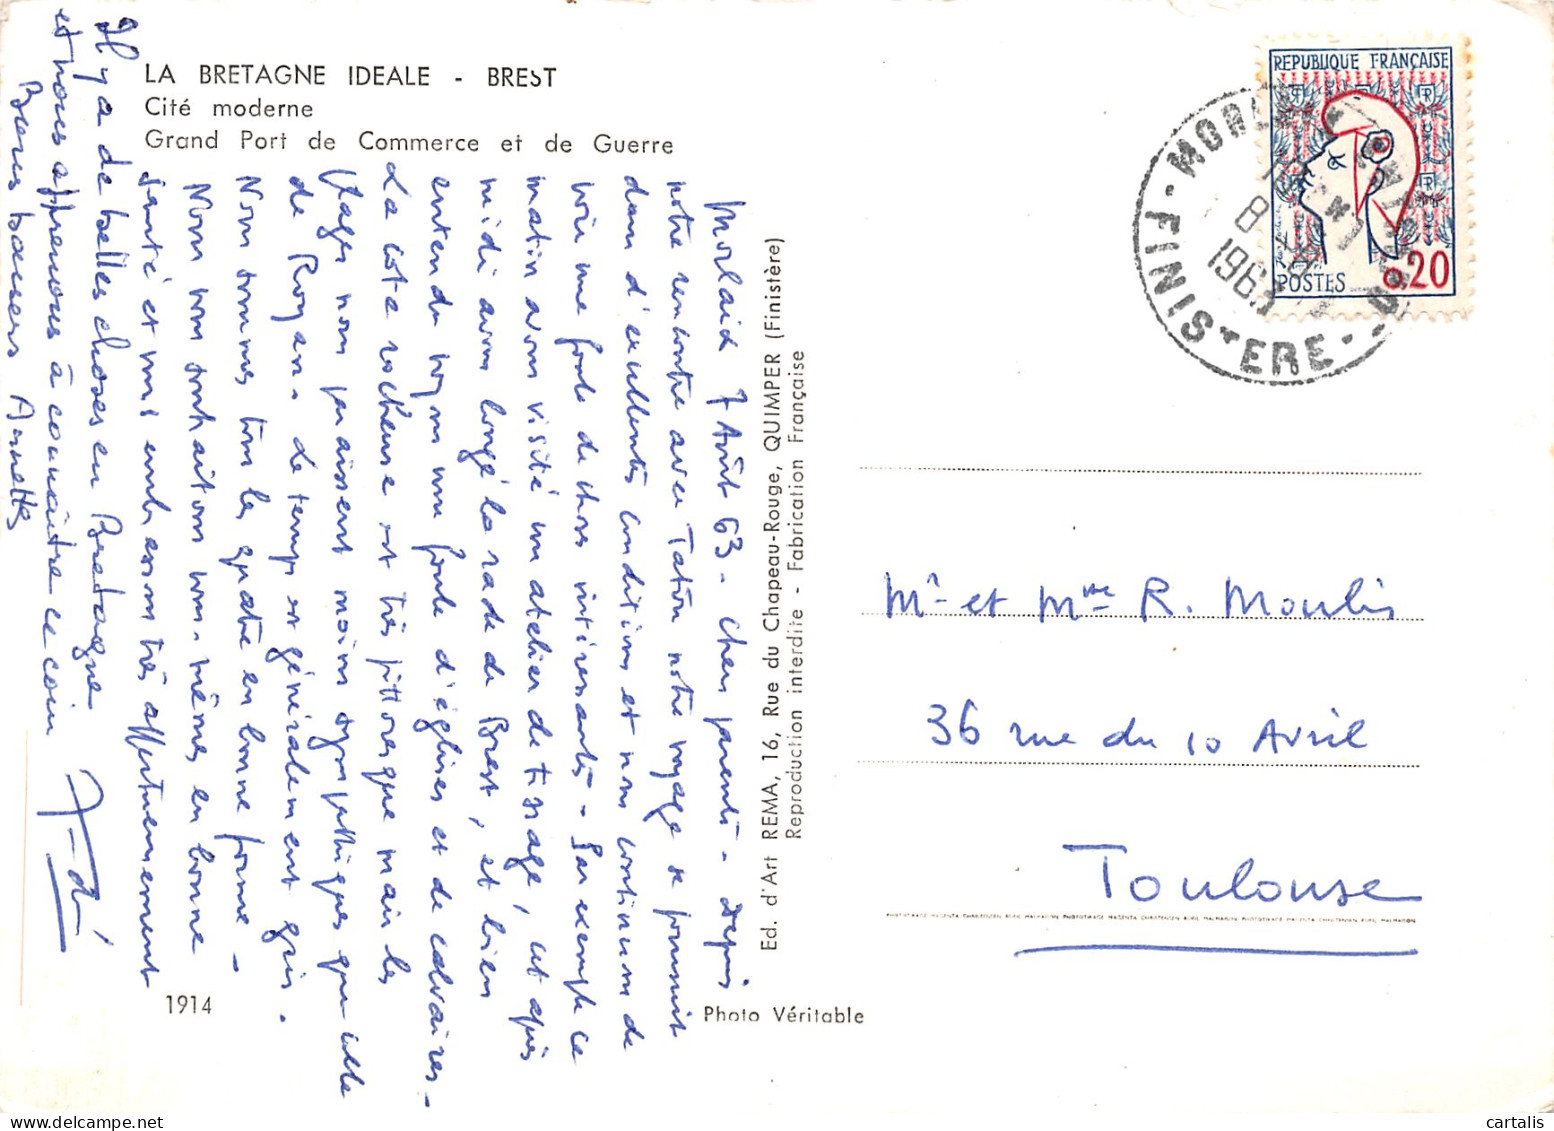 LA BRETAGNE IDEALE - BREST
Cité moderne
Grand Port de Commerce et de Guerre
Morlaix 7 Août 63 - Chers parents - Depuis
notre rencontre avec Taton notre voyage se poursuit
dans d'excellentes conditions et nous continuons de
voir une foule de choses intéressantes - Par exemple ce
matin avons visité un atelier de tissage, cet après
midi avons longé la rade de Brest, et bien
entendu voyons une foule d'églises et de calvaires -
La côte rocheuse est très pittoresque mais les
plages nous paraissent moins sympathiques que celle
de Royan - Le temps est généralement gris.
Nous sommes tous les quatre en bonne forme -
Nous vous souhaitons vous-mêmes en bonne
santé et vous embrassons très affectueusement
Il y a de belles choses en Bretagne
et nous apprenons à connaître ce coin
Bons baisers
1914
Photo Véritable
Ed. d'Art REMA, 16, Rue du Chapeau-Rouge, QUIMPER (Finistère)
Reproduction interdite - Fabrication Française
REPUBLIQUE FRANÇAISE
POSTES
0,20
FINISTERE
8
Mr et Mme R. Moulis
36 rue du 10 Avril
Toulouse
cartalis